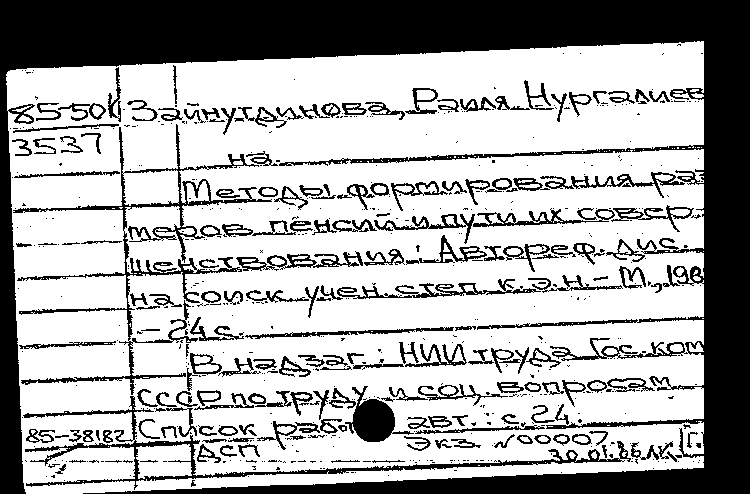 85-50К Зайнутдинова, Раиля Нургалиев
3537
на.
Методы формирования раз
меров пенсий и пути их совер
шенствования : Автореф. дис.
на соиск. учен. степ. к. э. н. - М., 198
. - 24 с.
В надзаг.: НИИ труда Гос. ком
СССР по труду и соц. вопросам
85-38182 Список работ авт.: с. 24.
ДСП Экз. №00007
30.01.86